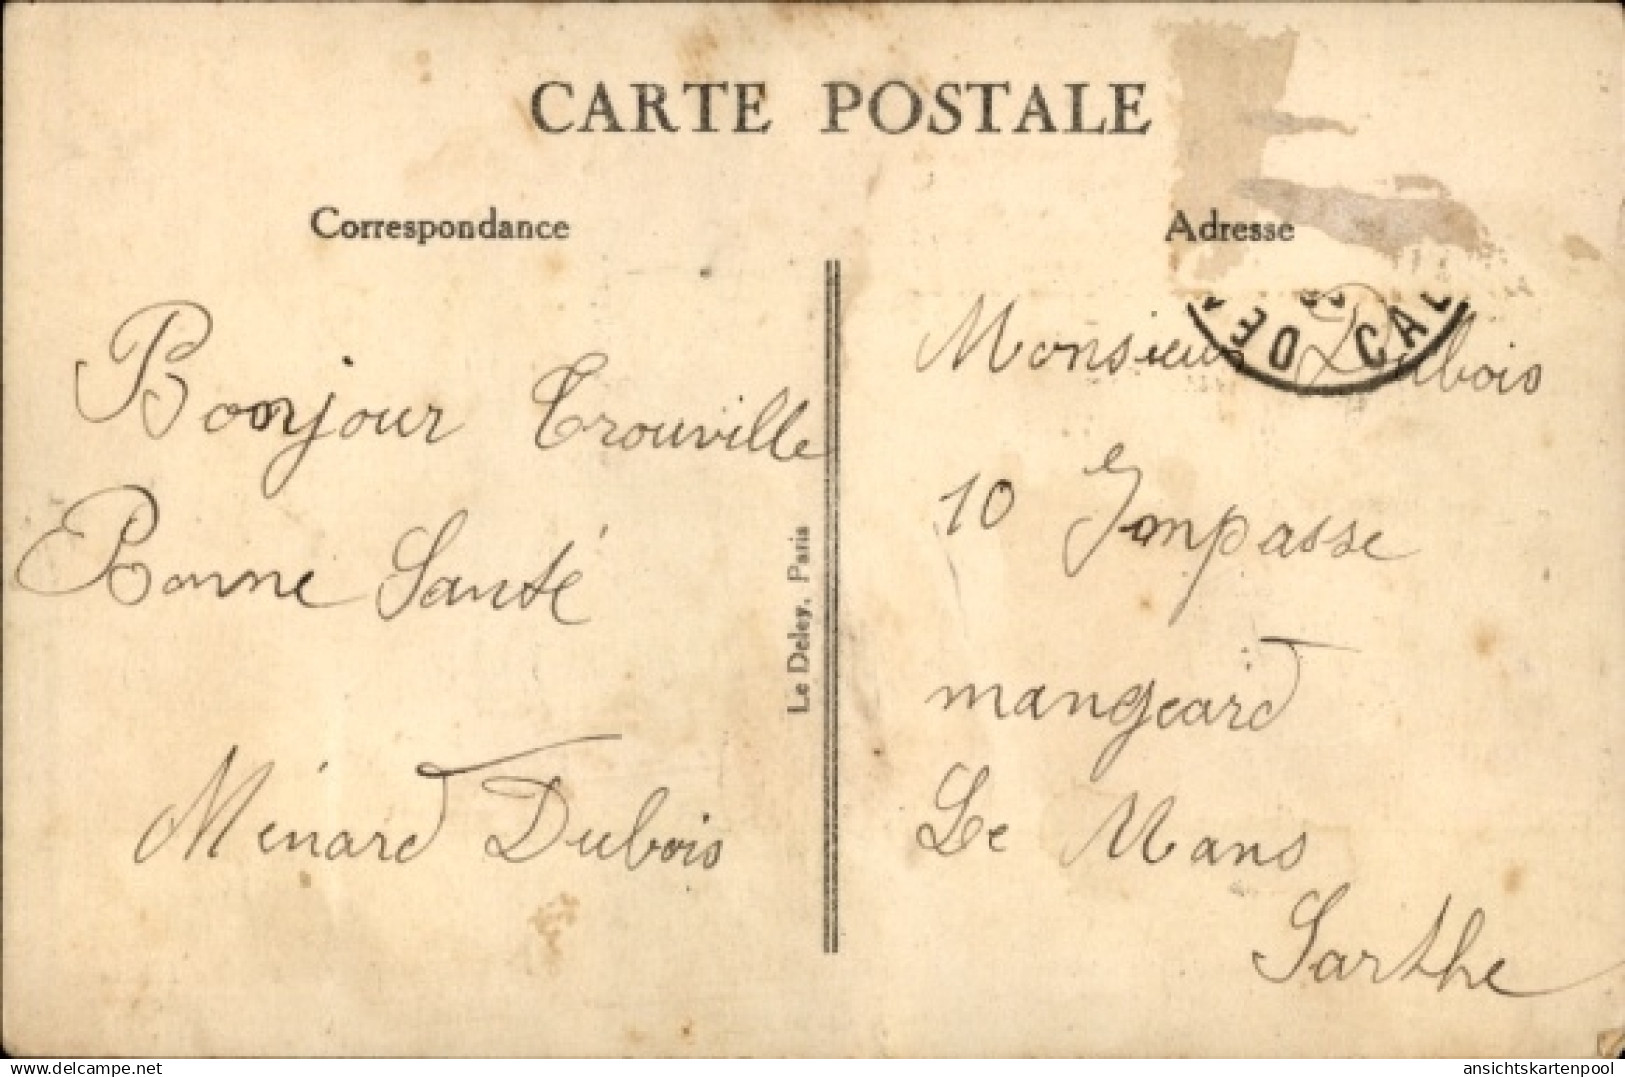 CARTE POSTALE
Correspondance
Bonjour Trouville
Bonne Santé
Ménard Dubois
Le Deley, Paris
Adresse
Monsieur Dubois
10 Impasse
mangeard
Le Mans
Sarthe
DE CAL
delcampe.net
ansichtskartenpool